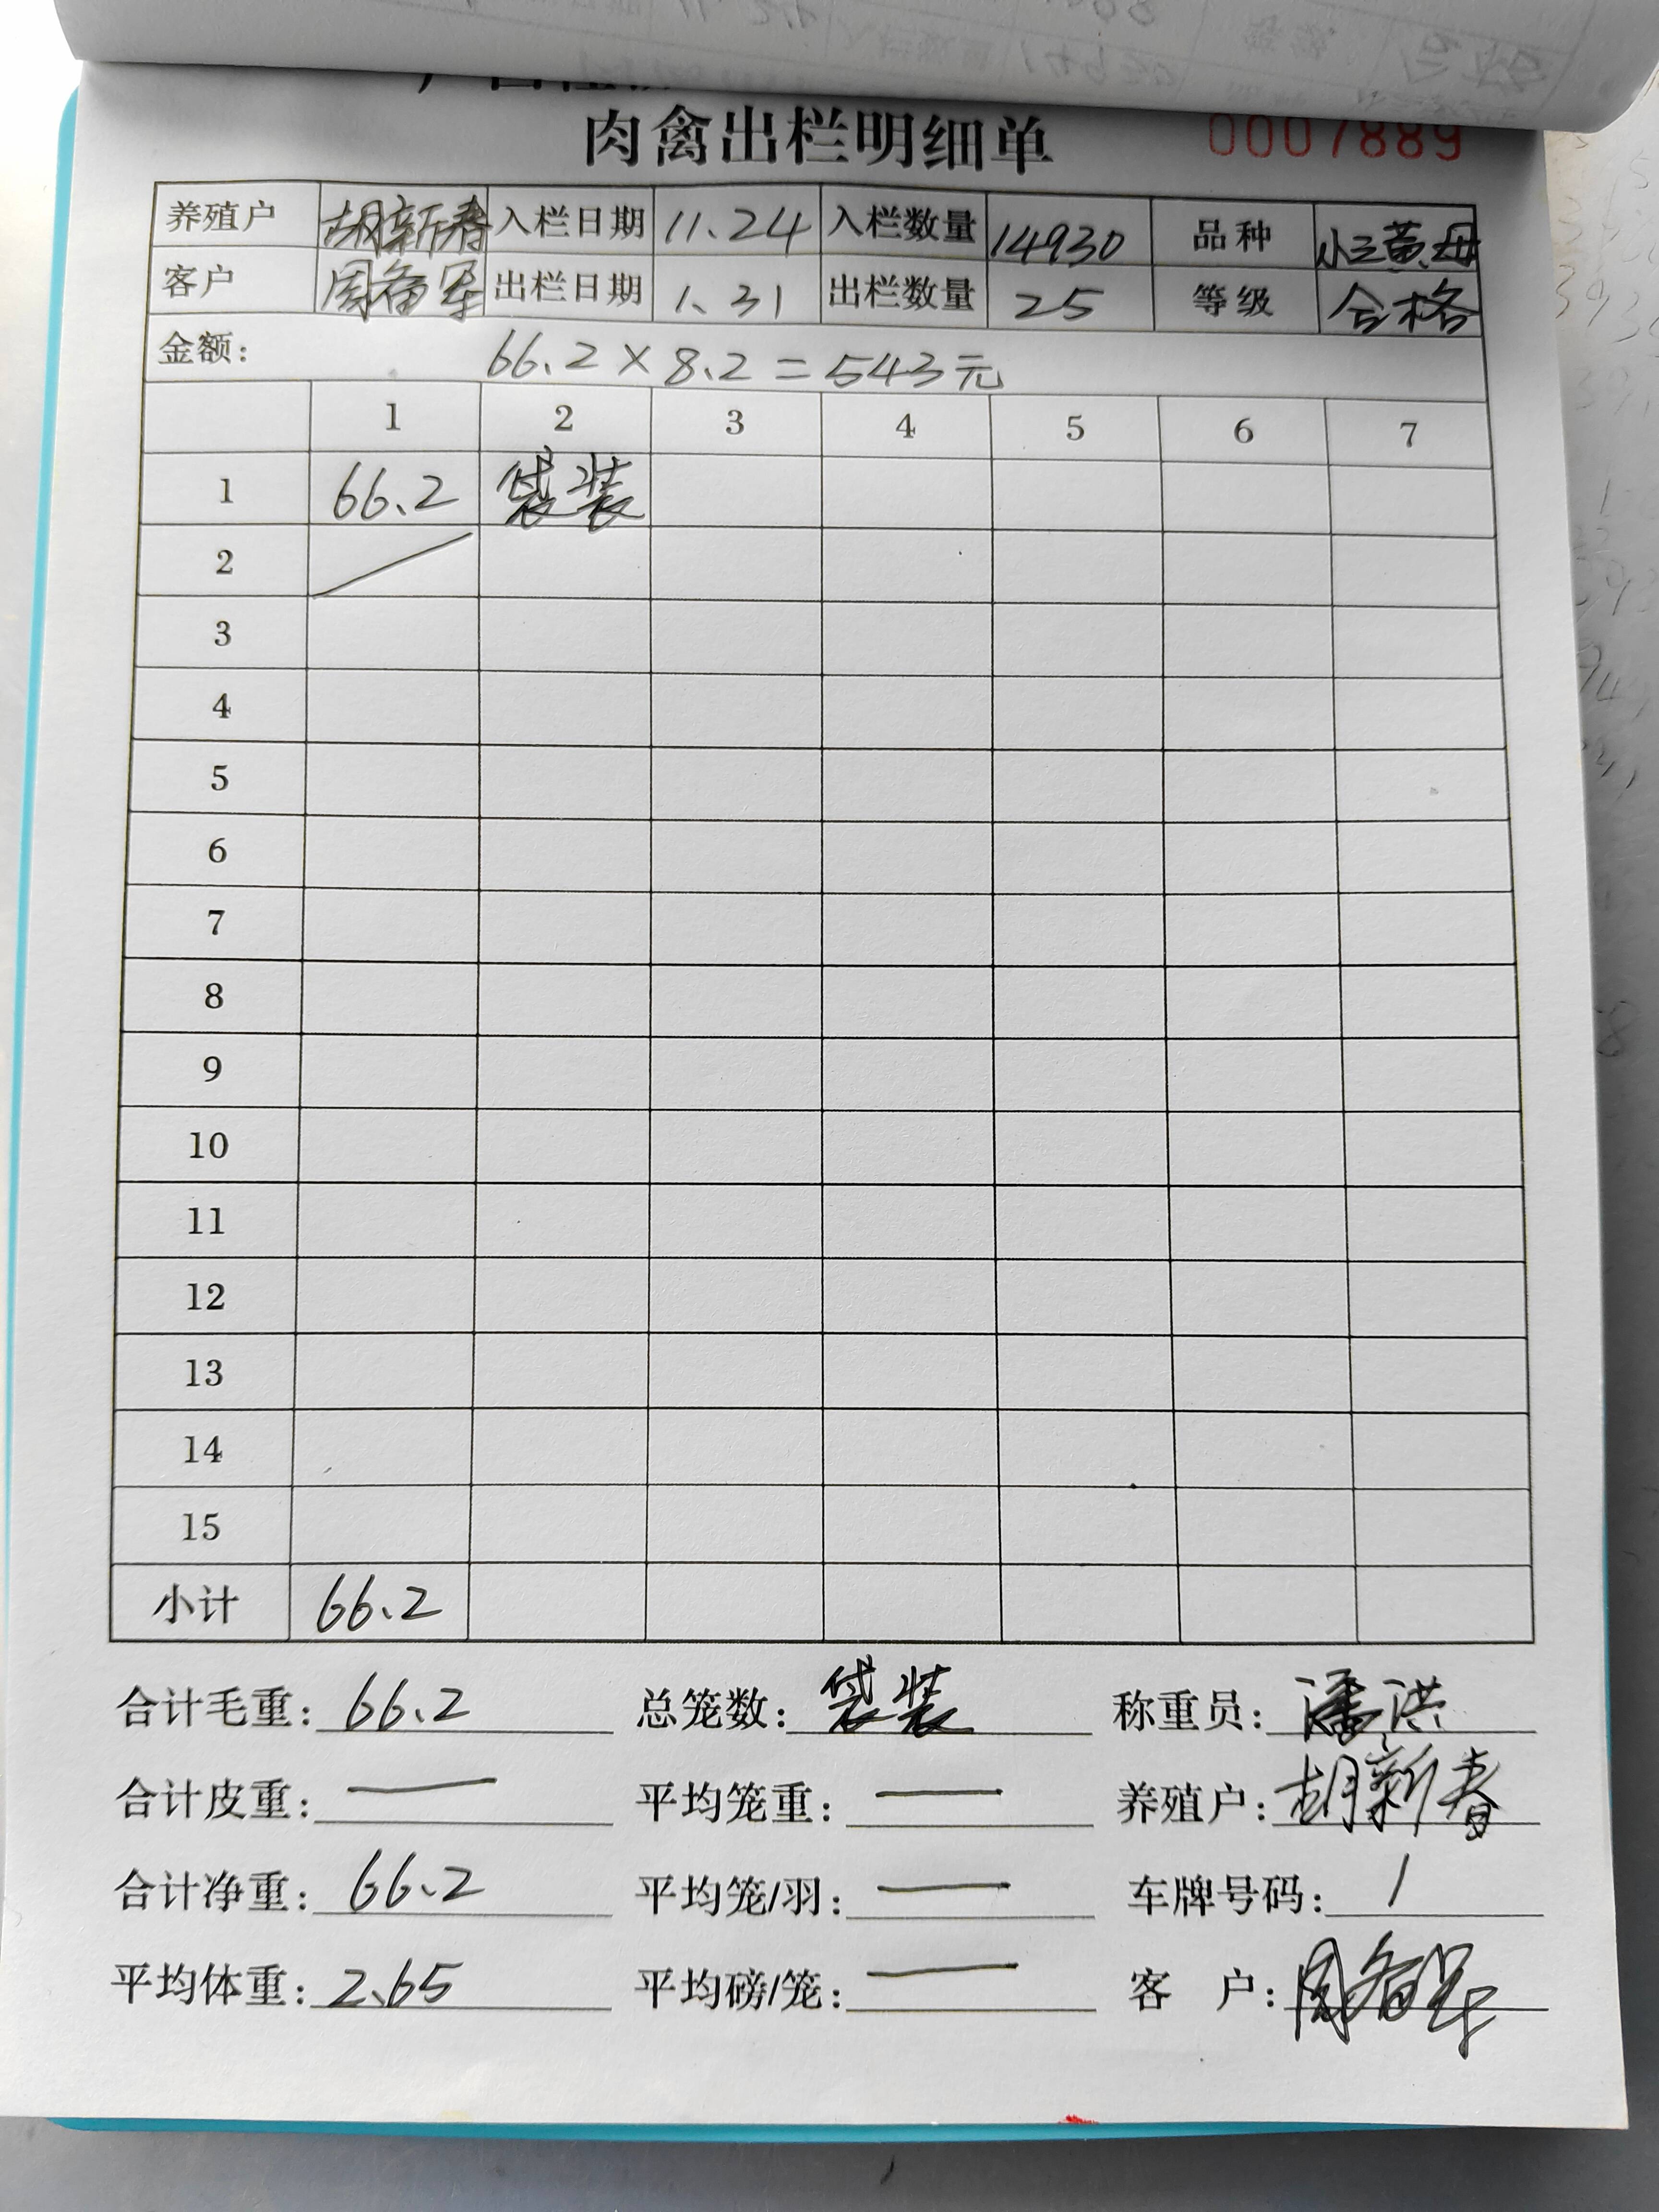 肉禽出栏明细单 0007889
养殖户 胡新春 入栏日期 11.24 入栏数量 14930 品种 小三黄母
客户 周备军 出栏日期 1.31 出栏数量 25 等级 合格
金额: 66.2×8.2=543元
1 2 3 4 5 6 7
1 66.2 袋装
2
3
4
5
6
7
8
9
10
11
12
13
14
15
小计 66.2
合计毛重: 66.2 总笼数: 袋装 称重员: 潘洪
合计皮重: — 平均笼重: — 养殖户: 胡新春
合计净重: 66.2 平均笼/羽: — 车牌号码: /
平均体重: 2.65 平均磅/笼: — 客 户: 周备军